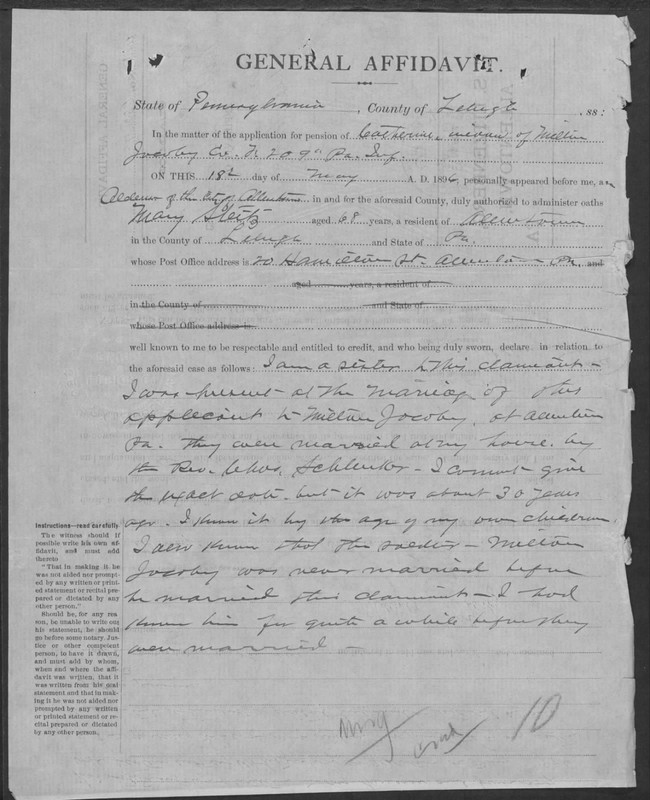 GENERAL AFFIDAVIT.
State of Pennsylvania, County of Lehigh, 88:
In the matter of the application for pension of Catherine, widow of Milton
Jacoby Co. 209th Pa. Inf.
ON THIS 18th day of May A. D. 1896, personally appeared before me, an
Alderman of the City of Allentown in and for the aforesaid County, duly authorized to administer oaths
Mary aged 68 years, a resident of Allentown
in the County of Lehigh and State of Pa.
whose Post Office address is Hamilton St. Allentown Pa. and
aged years, a resident of
in the County of and State of
whose Post Office address is
well known to me to be respectable and entitled to credit, and who being duly sworn, declare in relation to
the aforesaid case as follows: I am a sister to this claimant -
I was present at the marriage of this
applicant to Milton Jacoby, at Allentown
Pa. They were married at my house, by
the Rev. - I cannot give
the exact date - but it was about 30 years
ago. I know it by the age of my own children
I also know that the soldier - Milton
Jacoby was never married before
he married this claimant - I had
known him for quite a while before they
were married -
Instructions—read carefully
The witness should if
possible write his own af-
fidavit, and must add
thereto
"That in making it he
was not aided nor prompt-
ed by any written or print-
ed statement or recital pre-
pared or dictated by any
other person."
Should he, for any rea-
son, be unable to write out
his statement, he should
go before some notary, Jus-
tice or other competent
person, to have it drawn,
and must add by whom,
when and where the affi-
davit was written, that it
was written from his oral
statement and that in mak-
ing it he was not aided nor
prompted by any written
or printed statement or re-
cital prepared or dictated
by any other person.
10